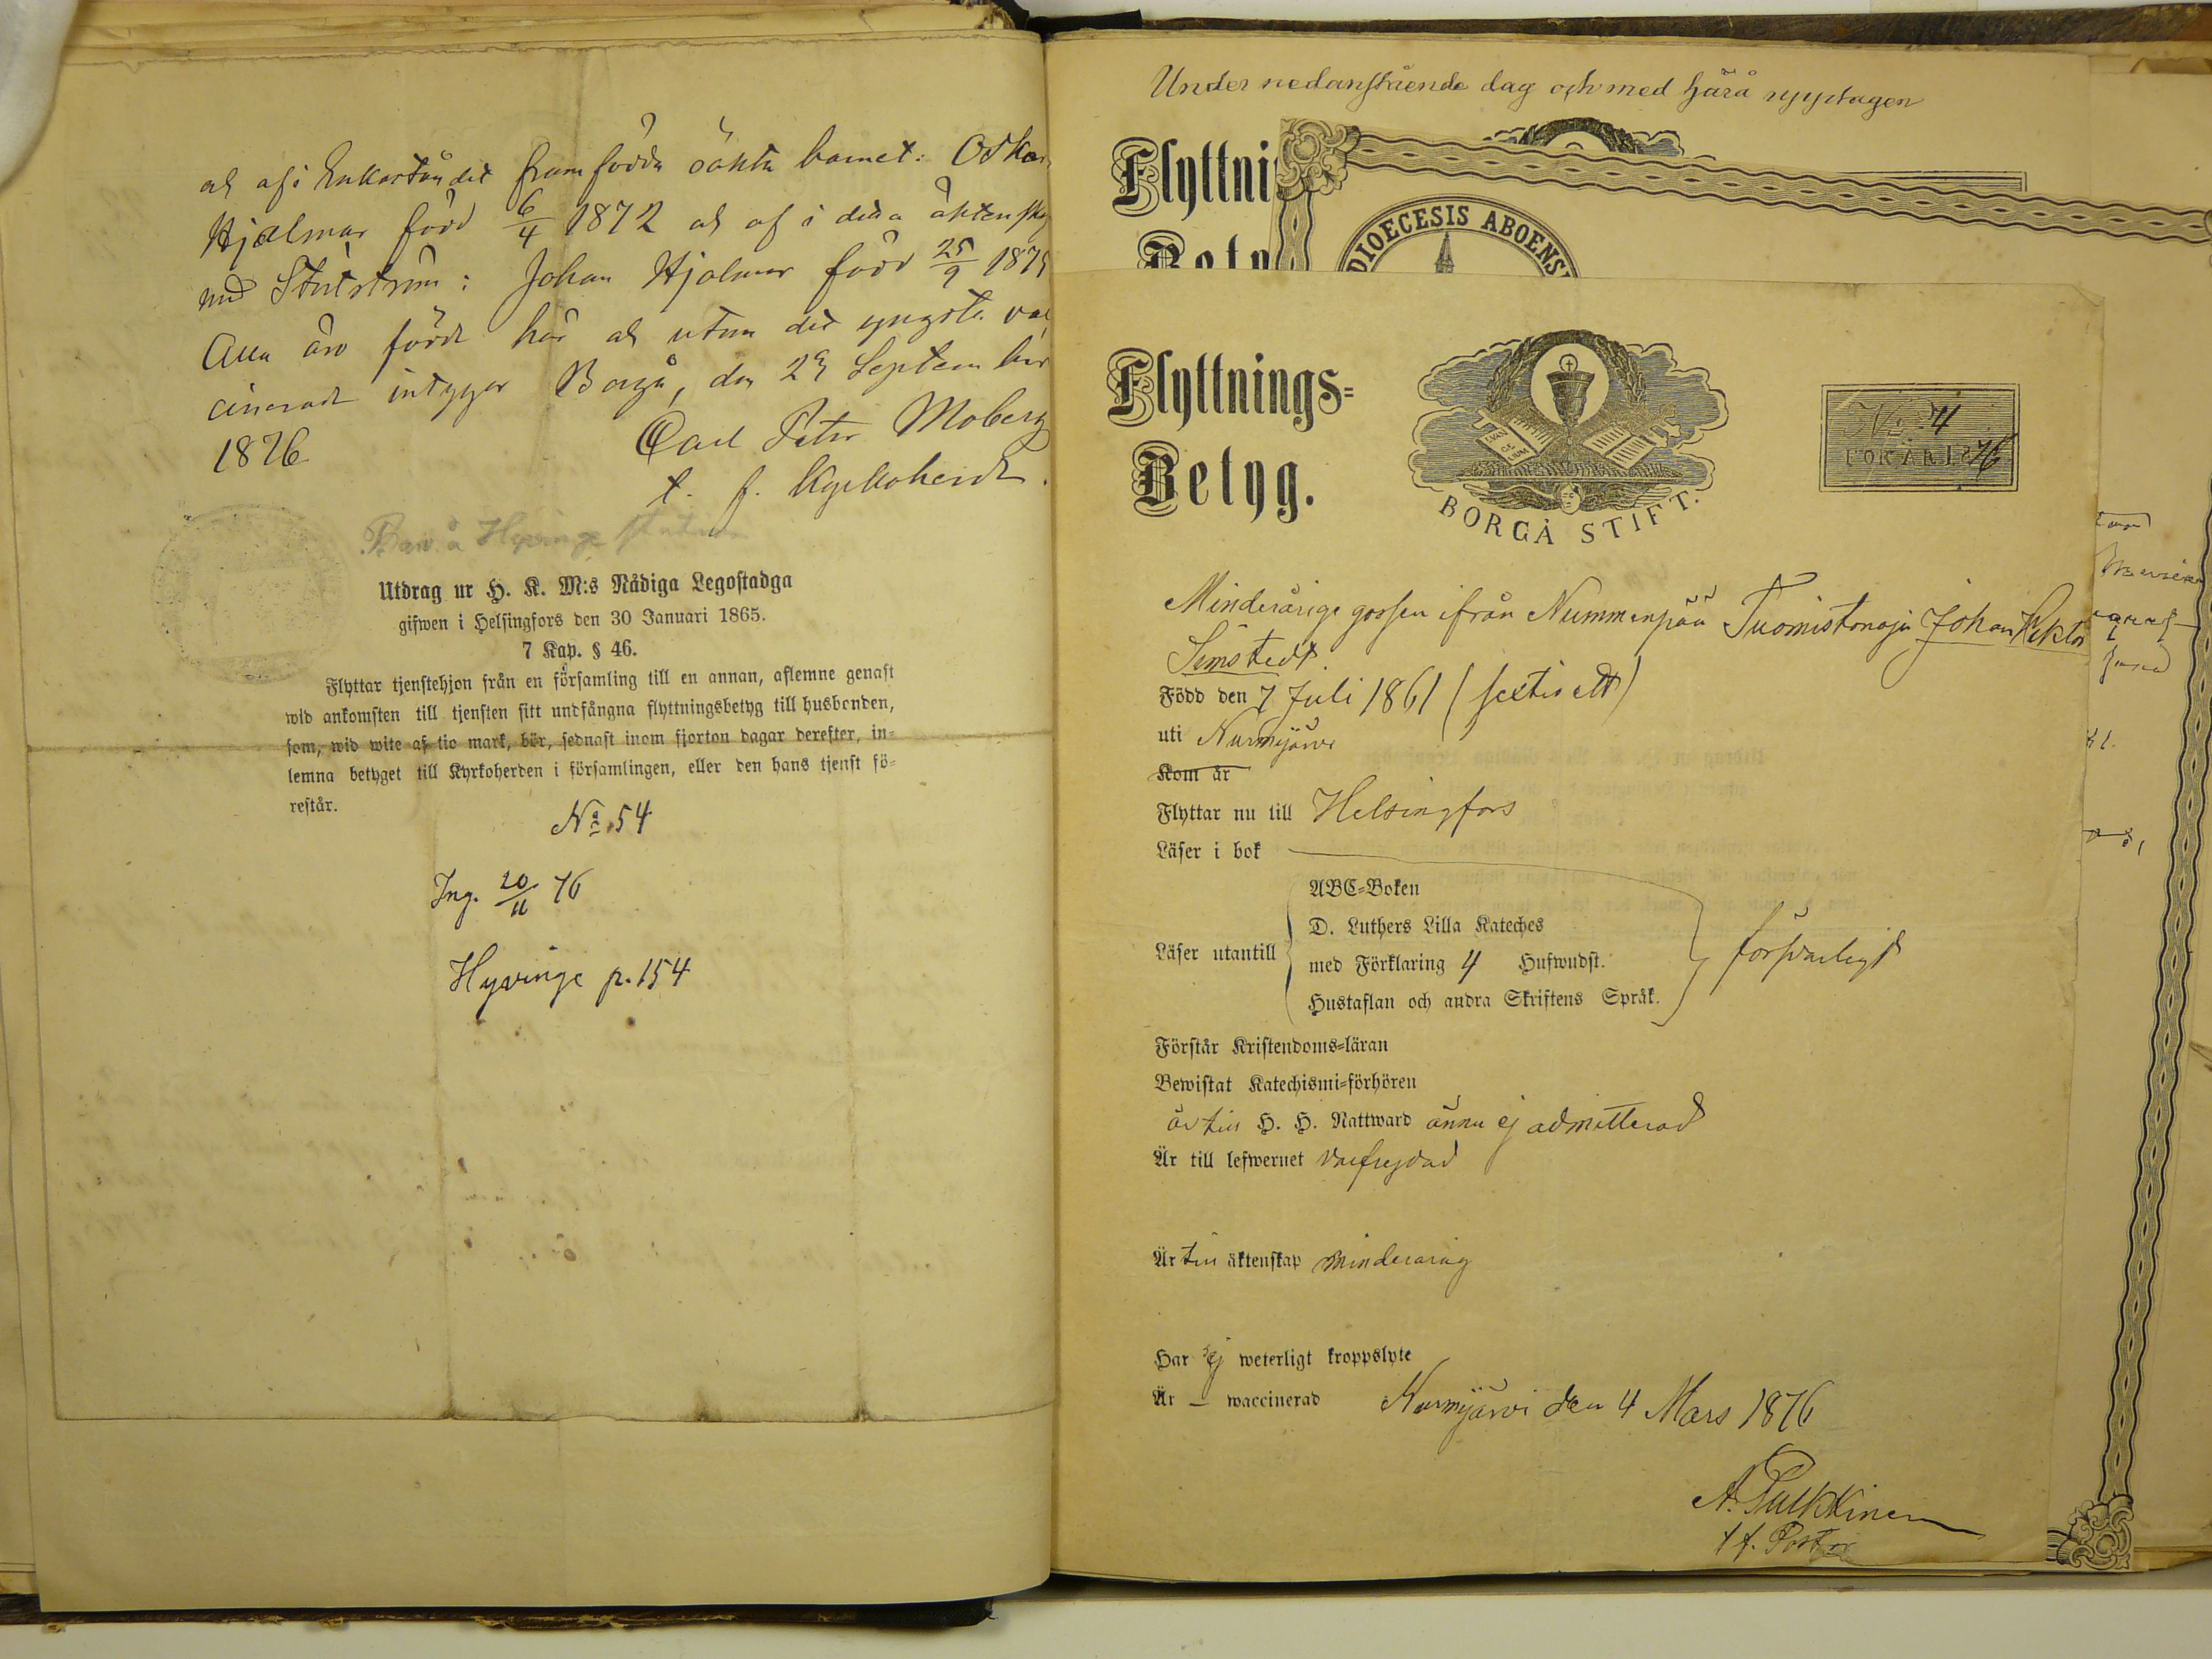 och af i Enkeståndet framfödda oäkta barnet: Oskar
Hjalmar född 6/4 1872 och af i detta äktenskap
med : Johan Hjalmar född 25/9 187
Alla äro födde här och utom det yngsta vac
cinerade intygar Borgå, den 29 September
1876. Carl Peter Moberg
t. f. Kyrkoherde.
Hyvinge station
Utdrag ur H. K. M:s Nådiga Legostadga
gifwen i Helsingfors den 30 Januari 1865.
7 Kap. § 46.
Flyttar tjenstehjon från en församling till en annan, aflemne genast
wid ankomsten till tjensten sitt undfångna flyttningsbetyg till husbonden,
som, wid wite af tio mark, bör, sednast inom fjorton dagar derefter, in=
lemna betyget till Kyrkoherden i församlingen, eller den hans tjenst fö=
restår.
No. 54
Ing. 20/11 76
Hyvinge p. 154
Under nedanstående dag och med
Flyttni
DIOECESIS ABOENS
Flyttnings=
Betyg.
EVAN
GE
LIUM
BORGÅ STIFT.
No. 4
FÖR ÅR 1876
Minderårige gossen ifrån Nummenpää Tuomistonoja Johan Viktor
Semstedt.
Född den 7 Juli 1861 (sextio ett)
uti Nurmijärvi
Kom år
Flyttar nu till Helsingfors
Läser i bok
Läser utantill
ABC=Boken
D. Luthers Lilla Kateches
med Förklaring 4 Hufwudst.
Hustaflan och andra Skriftens Språk.
försvarligt
Förstår Kristendoms=läran
Bewistat Katechismi=förhören
är till H. H. Nattward ännu ej admitterad
Är till lefwernet välfrejdad
Är till äktenskap minderårig
Har ej weterligt kroppslyte
Är – waccinerad Nurmijärvi den 4 Mars 1876
A. Pulkkinen
t f. Pastor